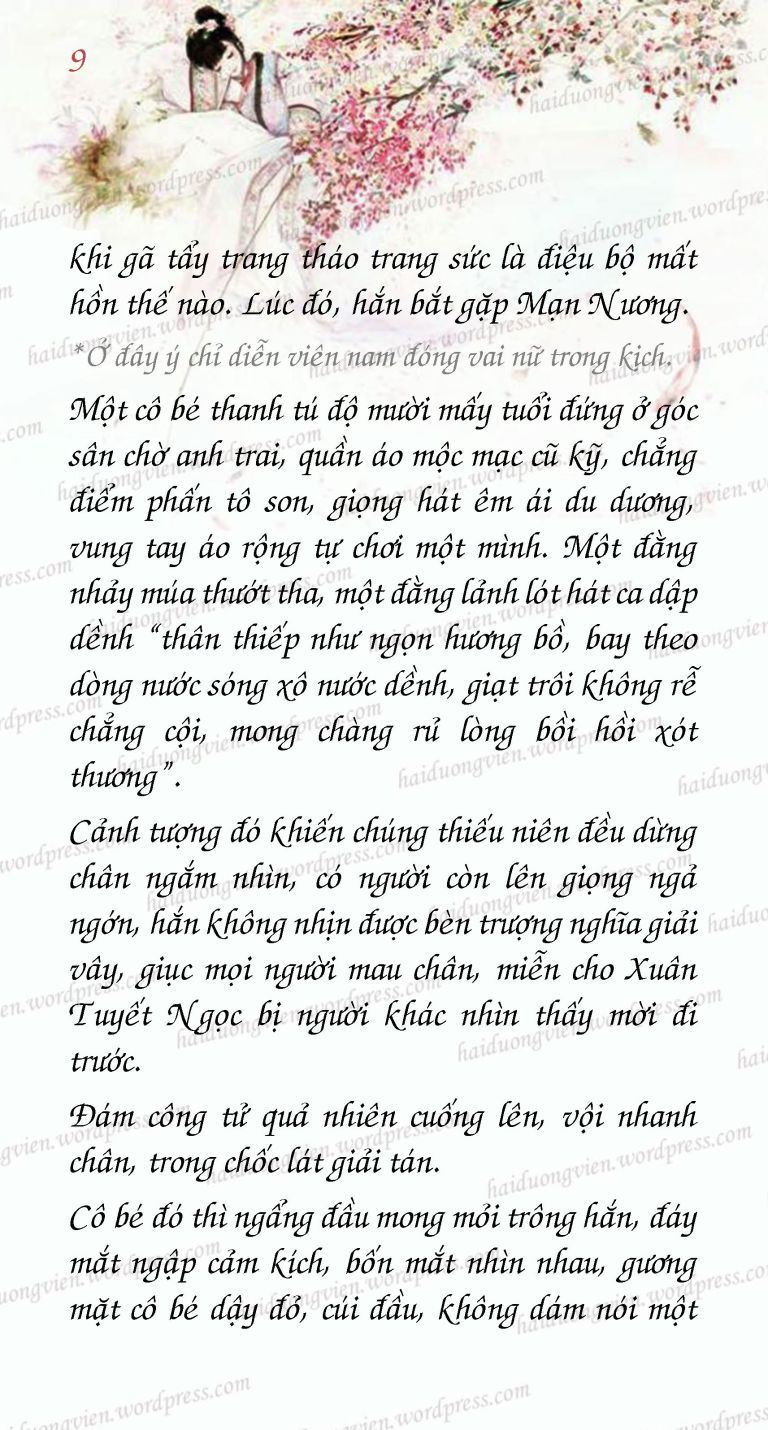 9
khi gã tẩy trang tháo trang sức là điệu bộ mất
hồn thế nào. Lúc đó, hắn bắt gặp Mạn Nương.
*Ở đây ý chỉ diễn viên nam đóng vai nữ trong kịch.
Một cô bé thanh tú độ mười mấy tuổi đứng ở góc
sân chờ anh trai, quần áo mộc mạc cũ kỹ, chẳng
điểm phấn tô son, giọng hát êm ái du dương,
vung tay áo rộng tự chơi một mình. Một đằng
nhảy múa thướt tha, một đằng lảnh lót hát ca dập
dềnh “thân thiếp như ngọn hương bồ, bay theo
dòng nước sóng xô nước dềnh, giạt trôi không rễ
chẳng cội, mong chàng rủ lòng bồi hồi xót
thương”.
Cảnh tượng đó khiến chúng thiếu niên đều dừng
chân ngắm nhìn, có người còn lên giọng ngả
ngớn, hắn không nhịn được bèn trượng nghĩa giải
vây, giục mọi người mau chân, miễn cho Xuân
Tuyết Ngọc bị người khác nhìn thấy mời đi
trước.
Đám công tử quả nhiên cuống lên, vội nhanh
chân, trong chốc lát giải tán.
Cô bé đó thì ngẩng đầu mong mỏi trông hắn, đáy
mắt ngập cảm kích, bốn mắt nhìn nhau, gương
mặt cô bé dậy đỏ, cúi đầu, không dám nói một
haiduongvien.wordpress.com